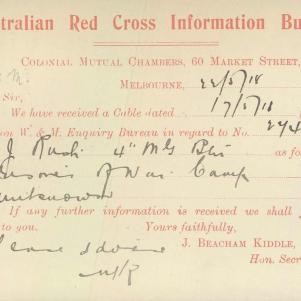 stralian Red Cross Information Bu
COLONIAL MUTUAL CHAMBERS, 60 MARKET STREET,
MELBOURNE, 22/5/18
Sir,
We have received a Cable dated 17/5/18
on W. & M. Enquiry Bureau in regard to No.
J. Rush 4" MG Btn as fo
Prisoner of War Camp
unknown
If any further information is received we shall
to you. Yours faithfully,
J. BEACHAM KIDDLE,
Please advise Hon. Secr
n/k